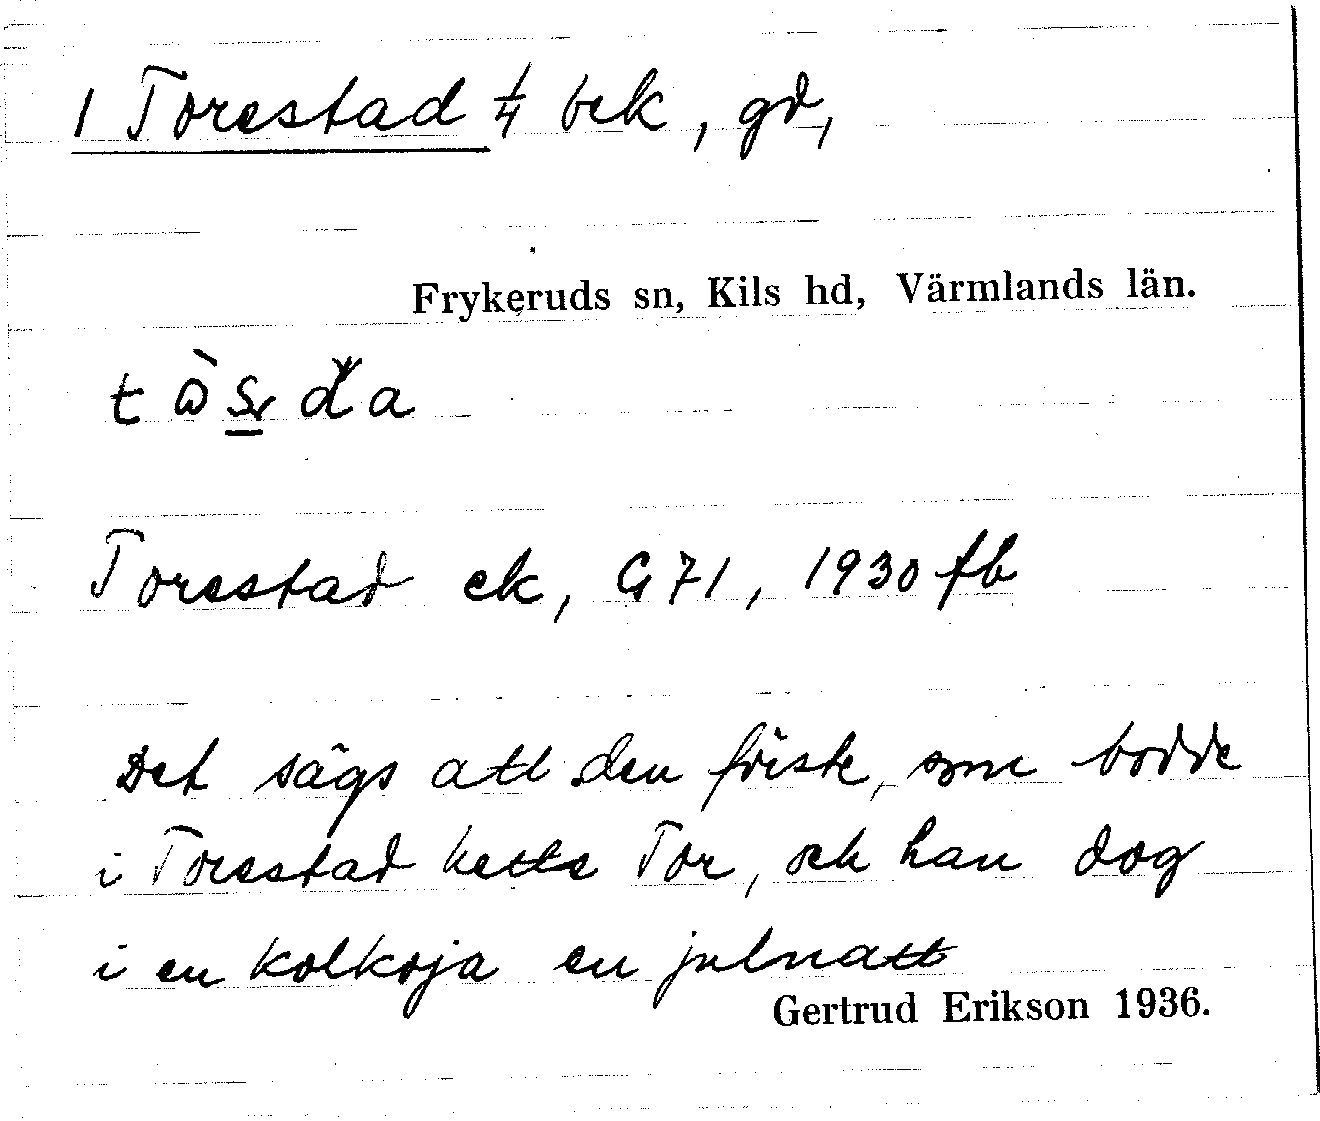 1 Torestad 1/4 bek, gd,
Frykeruds sn, Kils hd, Värmlands län.
Torestad ek, G 71, 1930 fb
Det sägs att den förste, som bodde
i Torestad hette Tor, och han dog
i en kolkoja en julnatt
Gertrud Erikson 1936.